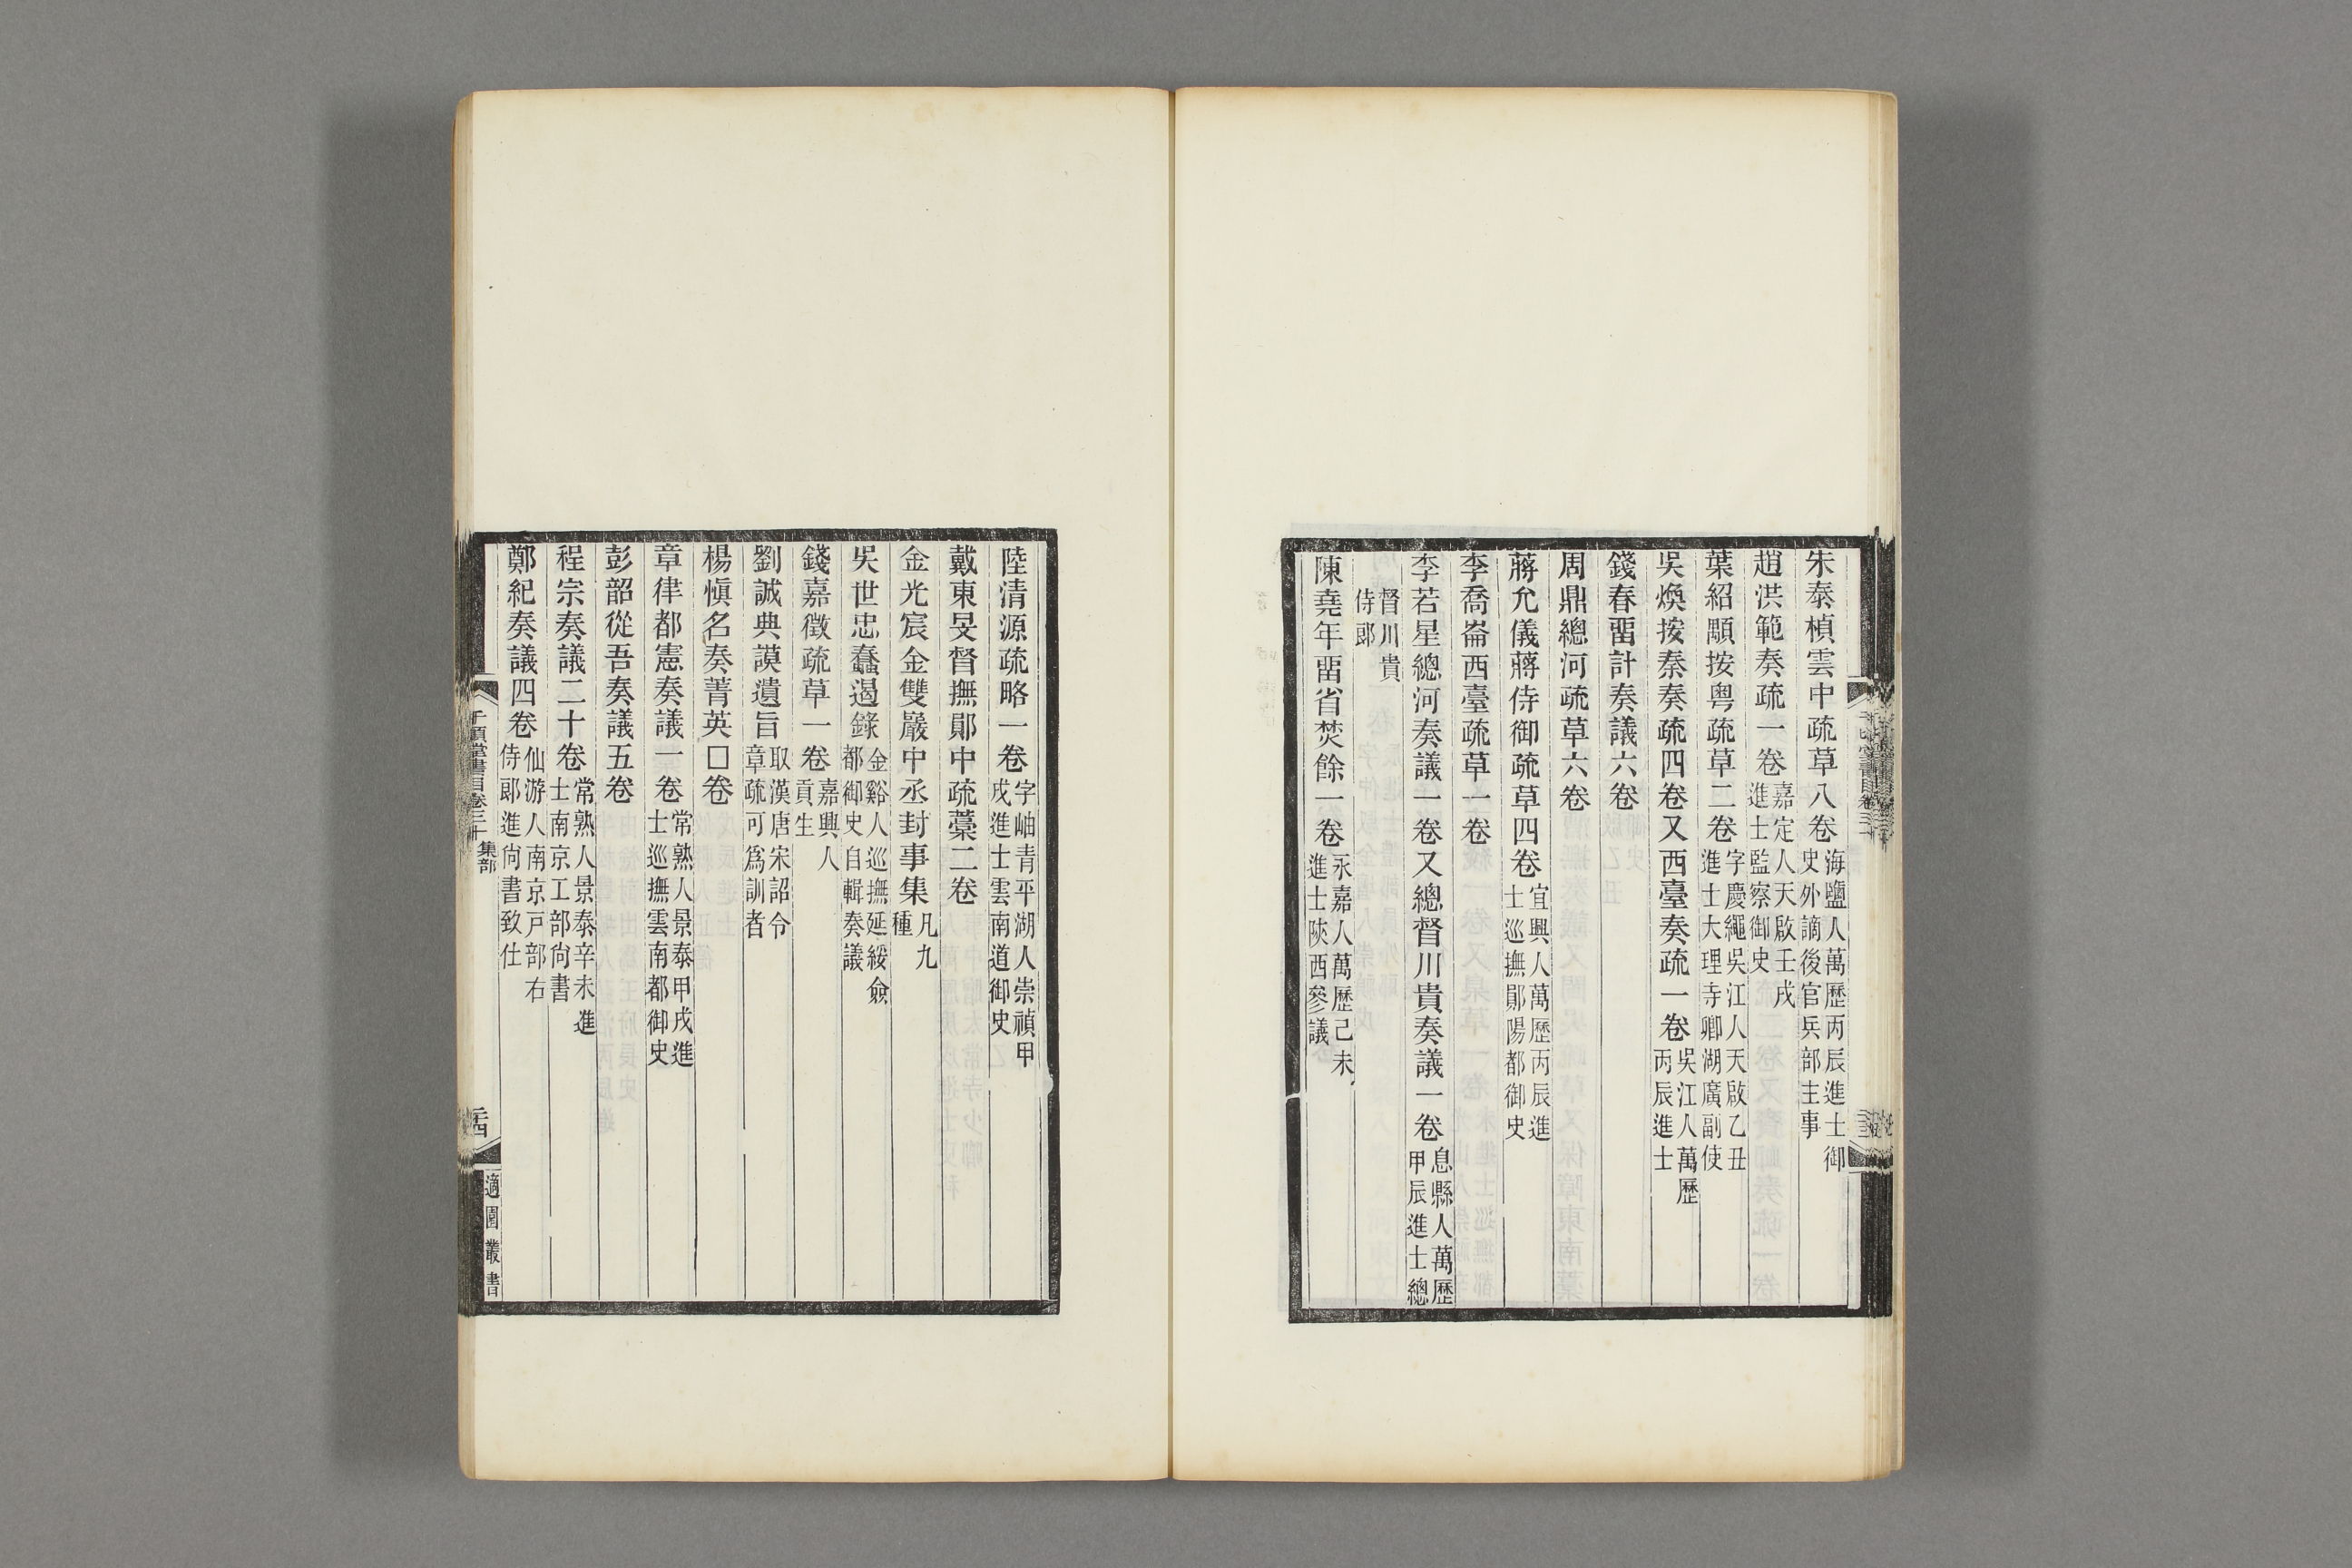 朱泰楨雲中疏草八卷海鹽人萬歷丙辰進士御史外謫後官兵部主事
趙洪範奏疏一卷嘉定人天啟壬戌進士監察御史
葉紹顒按粵疏草二卷字慶繩吳江人天啟乙丑進士大理寺卿湖廣副使
吳煥按秦奏疏四卷又西臺奏疏一卷吳江人萬歷丙辰進士
錢春畱計奏議六卷
周鼎總河疏草六卷
蔣允儀蔣侍御疏草四卷宜興人萬歷丙辰進士巡撫鄖陽都御史
李喬崙西臺疏草一卷
李若星總河奏議一卷又總督川貴奏議一卷息縣人萬歷甲辰進士總
督川貴侍郎
陳堯年畱省焚餘一卷永嘉人萬歷己未進士陝西參議
陸清源疏略一卷字岫青平湖人崇禎甲戌進士雲南道御史
戴東旻督撫鄖中疏藁二卷
金光宸金雙巖中丞封事集凡九種
吳世忠蠢遏錄金谿人巡撫延綏僉都御史自輯奏議
錢嘉徵疏草一卷嘉興人貢生
劉誠典謨遺旨取漢唐宋詔令章疏可爲訓者
楊愼名奏菁英囗卷
章律都憲奏議一卷常熟人景泰甲戌進士巡撫雲南都御史
彭韶從吾奏議五卷
程宗奏議二十卷常熟人景泰辛未進士南京工部尙書
鄭紀奏議四卷仙游人南京戸部右侍郎進尙書致仕
千頃堂書目卷三十 集部
二四
適園叢書